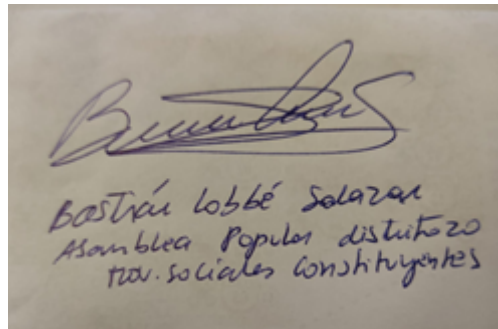 Bastián Labbé Salazar
Asamblea Popular distrito 20
Mov. Sociales Constituyentes